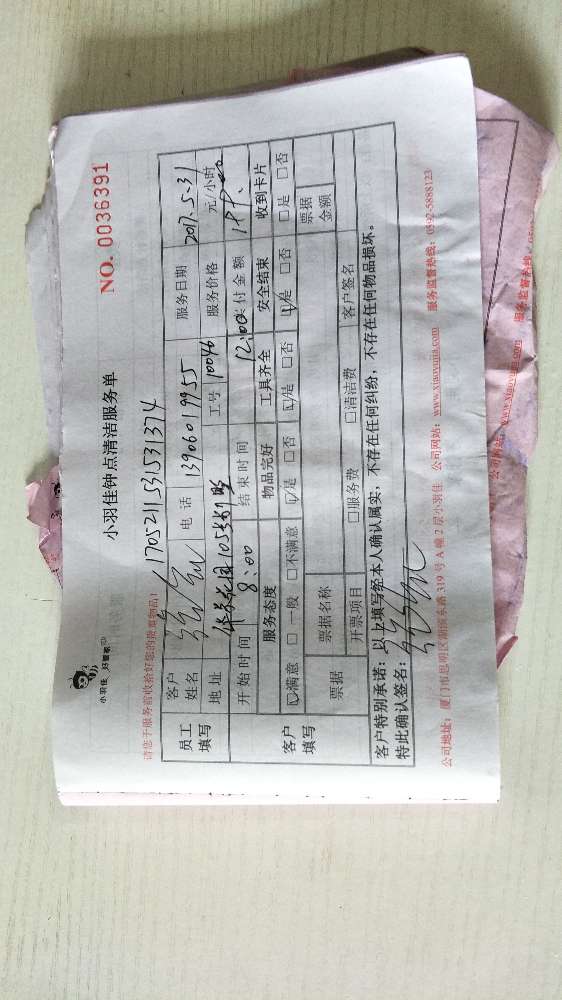 小羽佳 好管家
小羽佳钟点清洁服务单
NO. 0036391
请您于服务前收拾好您的贵重物品!
1705211531531374
员工填写
客户姓名
电话 13906019955
服务日期 2017.5.31
地址
工号 10046
服务价格 元/小时
开始时间 8:00
结束时间 12:00
付金额
客户填写
服务态度 物品完好 工具齐全 安全结束 收到卡片
☑满意 □一般 □不满意 ☑是 □否 ☑是 □否 ☑是 □否 □是 □否
票据 票据名称 票据金额
开票项目 □服务费 □清洁费 客户签名
客户特别承诺:以上填写经本人确认属实,不存在任何纠纷,不存在任何物品损坏。
特此确认签名:
公司地址:厦门市思明区湖滨东路 319 号 A 幢 2 层小羽佳 公司网站:www.xiaoyujia.com 服务监督热线:0592-5888123
公司网站:www.xiaoyujia.com 服务监督热线:0592